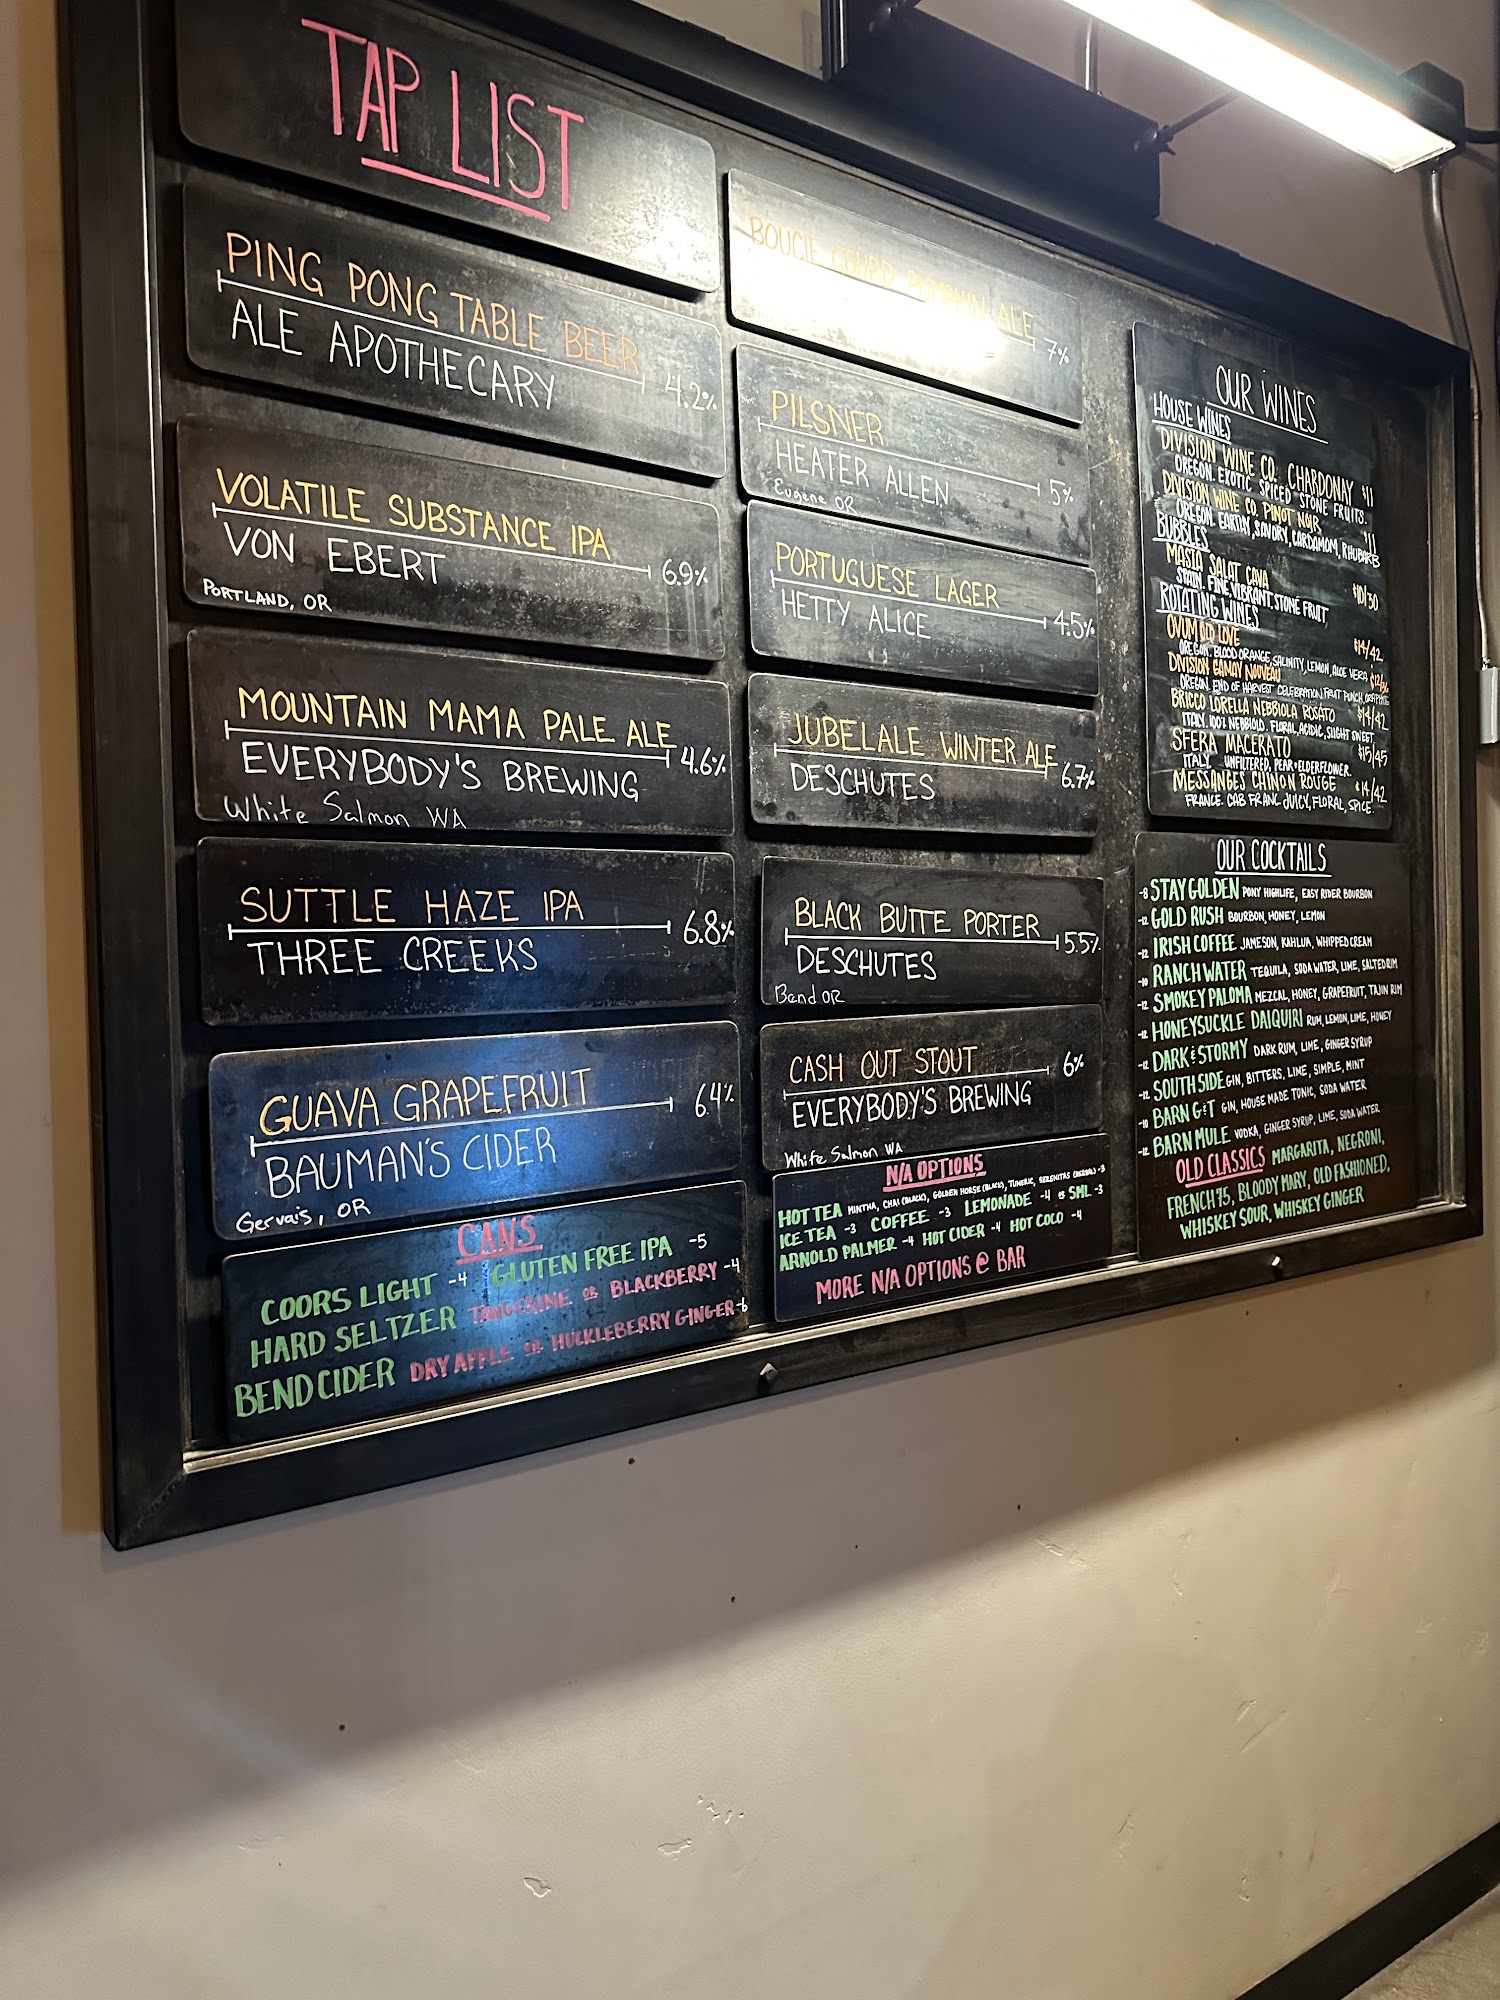 TAP LIST
PING PONG TABLE BEER
4.2%
ALE APOTHECARY
VOLATILE SUBSTANCE IPA
6.9%
VON EBERT
PORTLAND, OR
MOUNTAIN MAMA PALE ALE
4.6%
EVERYBODY'S BREWING
White Salmon WA
SUTTLE HAZE IPA
6.8%
THREE CREEKS
GUAVA GRAPEFRUIT
6.4%
BAUMAN'S CIDER
Gervais, OR
CANS
COORS LIGHT -4 GLUTEN FREE IPA -5
HARD SELTZER TANGERINE OR BLACKBERRY -4
BEND CIDER DRY APPLE OR HUCKLEBERRY GINGER -6
BOUGIE GOURD PUMPKIN ALE
7%
PILSNER
5%
HEATER ALLEN
Eugene OR
PORTUGUESE LAGER
4.5%
HETTY ALICE
JUBELALE WINTER ALE
6.7%
DESCHUTES
BLACK BUTTE PORTER
5.5%
DESCHUTES
Bend OR
CASH OUT STOUT
6%
EVERYBODY'S BREWING
White Salmon WA
N/A OPTIONS
HOT TEA MINTHA, CHAI (BLACK), GOLDEN HORSE (BLACK), TUMERIC, SERENITAS (HERBAL) -3
ICE TEA -3 COFFEE -3 LEMONADE -4 OR SML -3
ARNOLD PALMER -4 HOT CIDER -4 HOT COCO -4
MORE N/A OPTIONS @ BAR
OUR WINES
HOUSE WINES
DIVISION WINE CO. CHARDONAY $11
OREGON. EXOTIC SPICED STONE FRUITS.
DIVISION WINE CO. PINOT NOIR $11
OREGON. EARTHY, SAVORY, CARDAMOM, RHUBARB
BUBBLES
MASIA SALAT CAVA $10/30
SPAIN. FINE, VIBRANT, STONE FRUIT,
ROTATING WINES
OVUM OLD LOVE $14/42
OREGON. BLOOD ORANGE, SALINITY, LEMON, ALOE VERA
DIVISION GAMAY NOUVEAU $12/36
OREGON. END OF HARVEST CELEBRATION. FRUIT PUNCH,
BRICCO LORELLA NEBBIOLA ROSATO $14/42
ITALY. 100% NEBBIOLO. FLORAL, ACIDIC, SLIGHT SWEET
SFERA MACERATO $15/45
ITALY. UNFILTERED, PEAR + ELDERFLOWER.
MESSANGES CHINON ROUGE $14/42
FRANCE. CAB FRANC. JUICY, FLORAL, SPICE.
OUR COCKTAILS
-8 STAY GOLDEN PONY HIGHLIFE, EASY RIDER BOURBON
-12 GOLD RUSH BOURBON, HONEY, LEMON
-12 IRISH COFFEE JAMESON, KAHLUA, WHIPPED CREAM
-10 RANCH WATER TEQUILA, SODA WATER, LIME, SALTED RIM
-12 SMOKEY PALOMA MEZCAL, HONEY, GRAPEFRUIT, TAJIN RIM
-12 HONEYSUCKLE DAIQUIRI RUM, LEMON, LIME, HONEY
-12 DARK & STORMY DARK RUM, LIME, GINGER SYRUP
-12 SOUTH SIDE GIN, BITTERS, LIME, SIMPLE, MINT
-10 BARN G&T GIN, HOUSE MADE TONIC, SODA WATER
-12 BARN MULE VODKA, GINGER SYRUP, LIME, SODA WATER
OLD CLASSICS MARGARITA, NEGRONI,
FRENCH 75, BLOODY MARY, OLD FASHIONED,
WHISKEY SOUR, WHISKEY GINGER